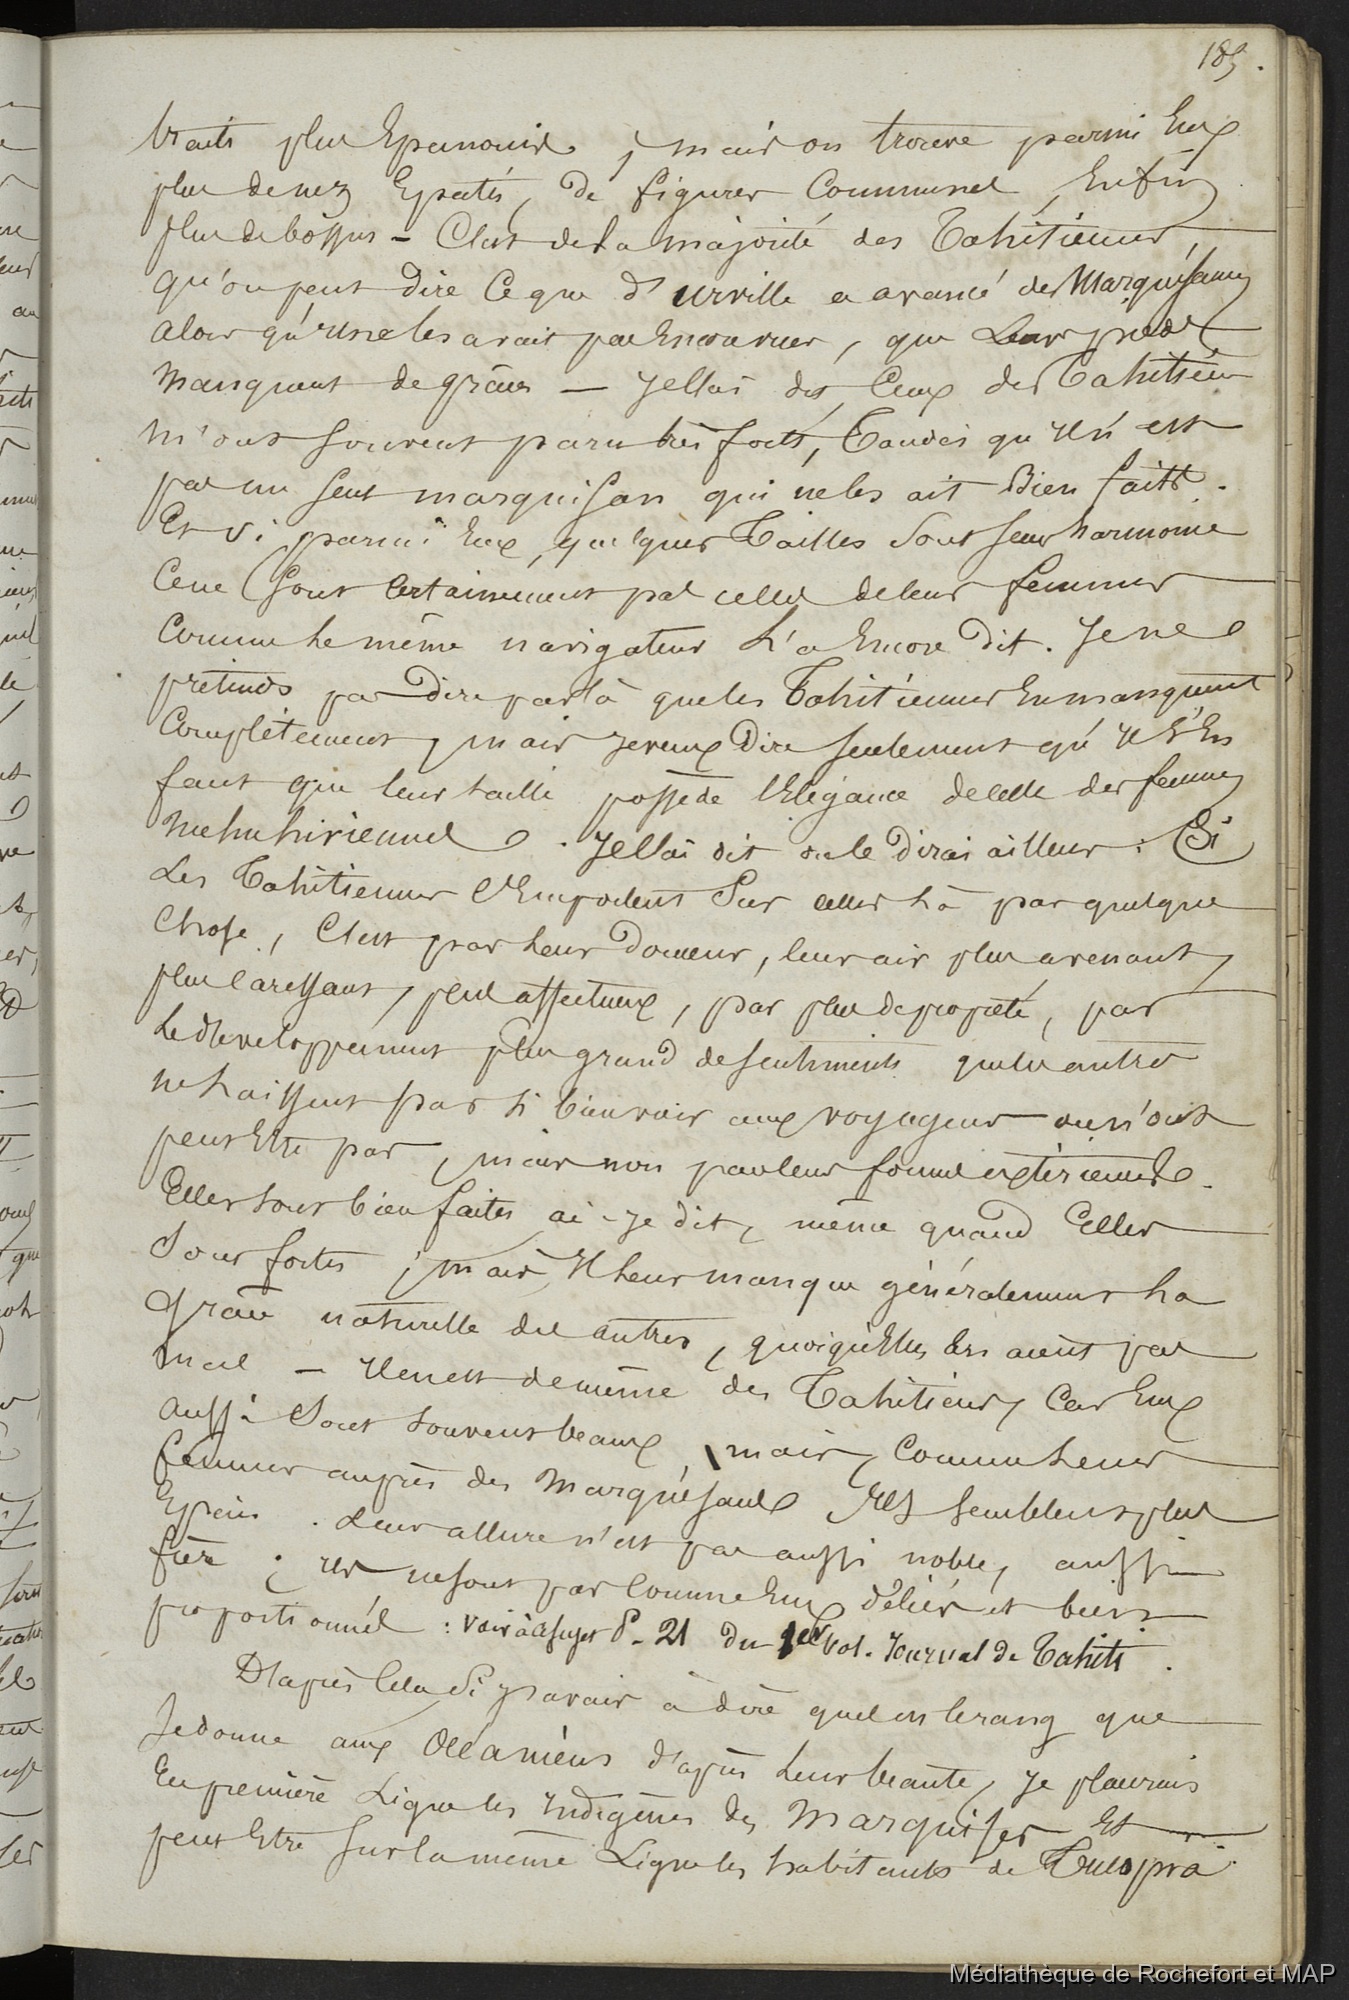 185.
traits plus Epanouis, mais on trouve parmi Eux
plus de nez Epatés, de figures Communes, Enfin
plus de bossus - C'est de la majorité des Tahitiennes,
qu'on peut dire Ce que d'urville a avancé des Marquésanes
alors qu'il ne les avait pas Encore vues, que Leurs pieds
manquent de grâces — Je l'ai dit, Ceux des Tahitiens
m'ont souvent paru très forts, Tandis qu'il n'est
pas un seul marquisan qui ne les ait Bien faits.
Et si parmi Eux, quelques Tailles sont sans harmonie
Ce ne sont Certainement pas celles de leurs femmes
Comme le même navigateur L'a Encore dit. Je ne
prétends pas Dire par là que les Tahitiennes En manquent
Complètement, mais je veux Dire seulement qu'il s'En
faut que leur taille possède l'Elégance de celle des femmes
nukuhiviennes. Je l'ai dit ou le dirai ailleurs : Si
Les Tahitiennes l'Emportent Sur celles là par quelque
Chose, C'est par leur Douceur, leur air plus avenant,
plus Caressant, plus affectueux, par plus de propreté, par
le développement plus grand de sentiments que les autres
ne laissent pas si bien voir aux voyageurs ou n'ont
peut Etre pas, mais non par leurs formes extérieures.
Elles sont bien faites ai-je dit, même quand Elles
Sont fortes ; mais, Il leur manque généralement la
Grâce naturelle des autres, quoiqu'Elles n'en aient pas
mal — Il en est de même des Tahitiens, Car Eux
aussi Sont souvent beaux, mais, Comme leurs
femmes auprès des Marquésanes Ils semblent plus
Epais. Leur allure n'est pas aussi noble, aussi
fière ; Ils ne sont pas Comme Eux déliés et bien
proportionnés : voir à ce sujet P. 21 du 1er vol. Journal de Tahiti.
D'après Cela Si j'avais à dire quel est le rang que
Je donne aux Océaniens d'après leur beauté, Je placerais
En première Ligne les Indigènes des Marquises Et
peut Etre sur la même Ligne les habitants de Tucopia
Médiathèque de Rochefort et MAP